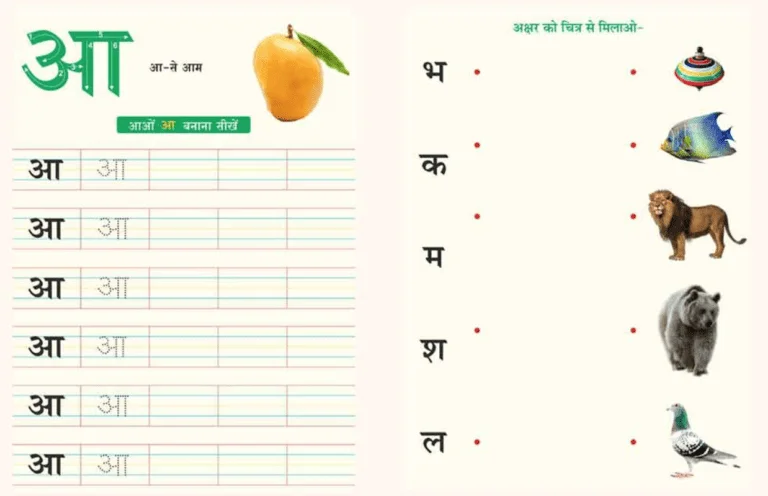 आ
आ-से आम
आओं आ बनाना सीखें
आ आ
आ आ
आ आ
आ आ
आ आ
आ आ
अक्षर को चित्र से मिलाओ-
भ
क
म
श
ल